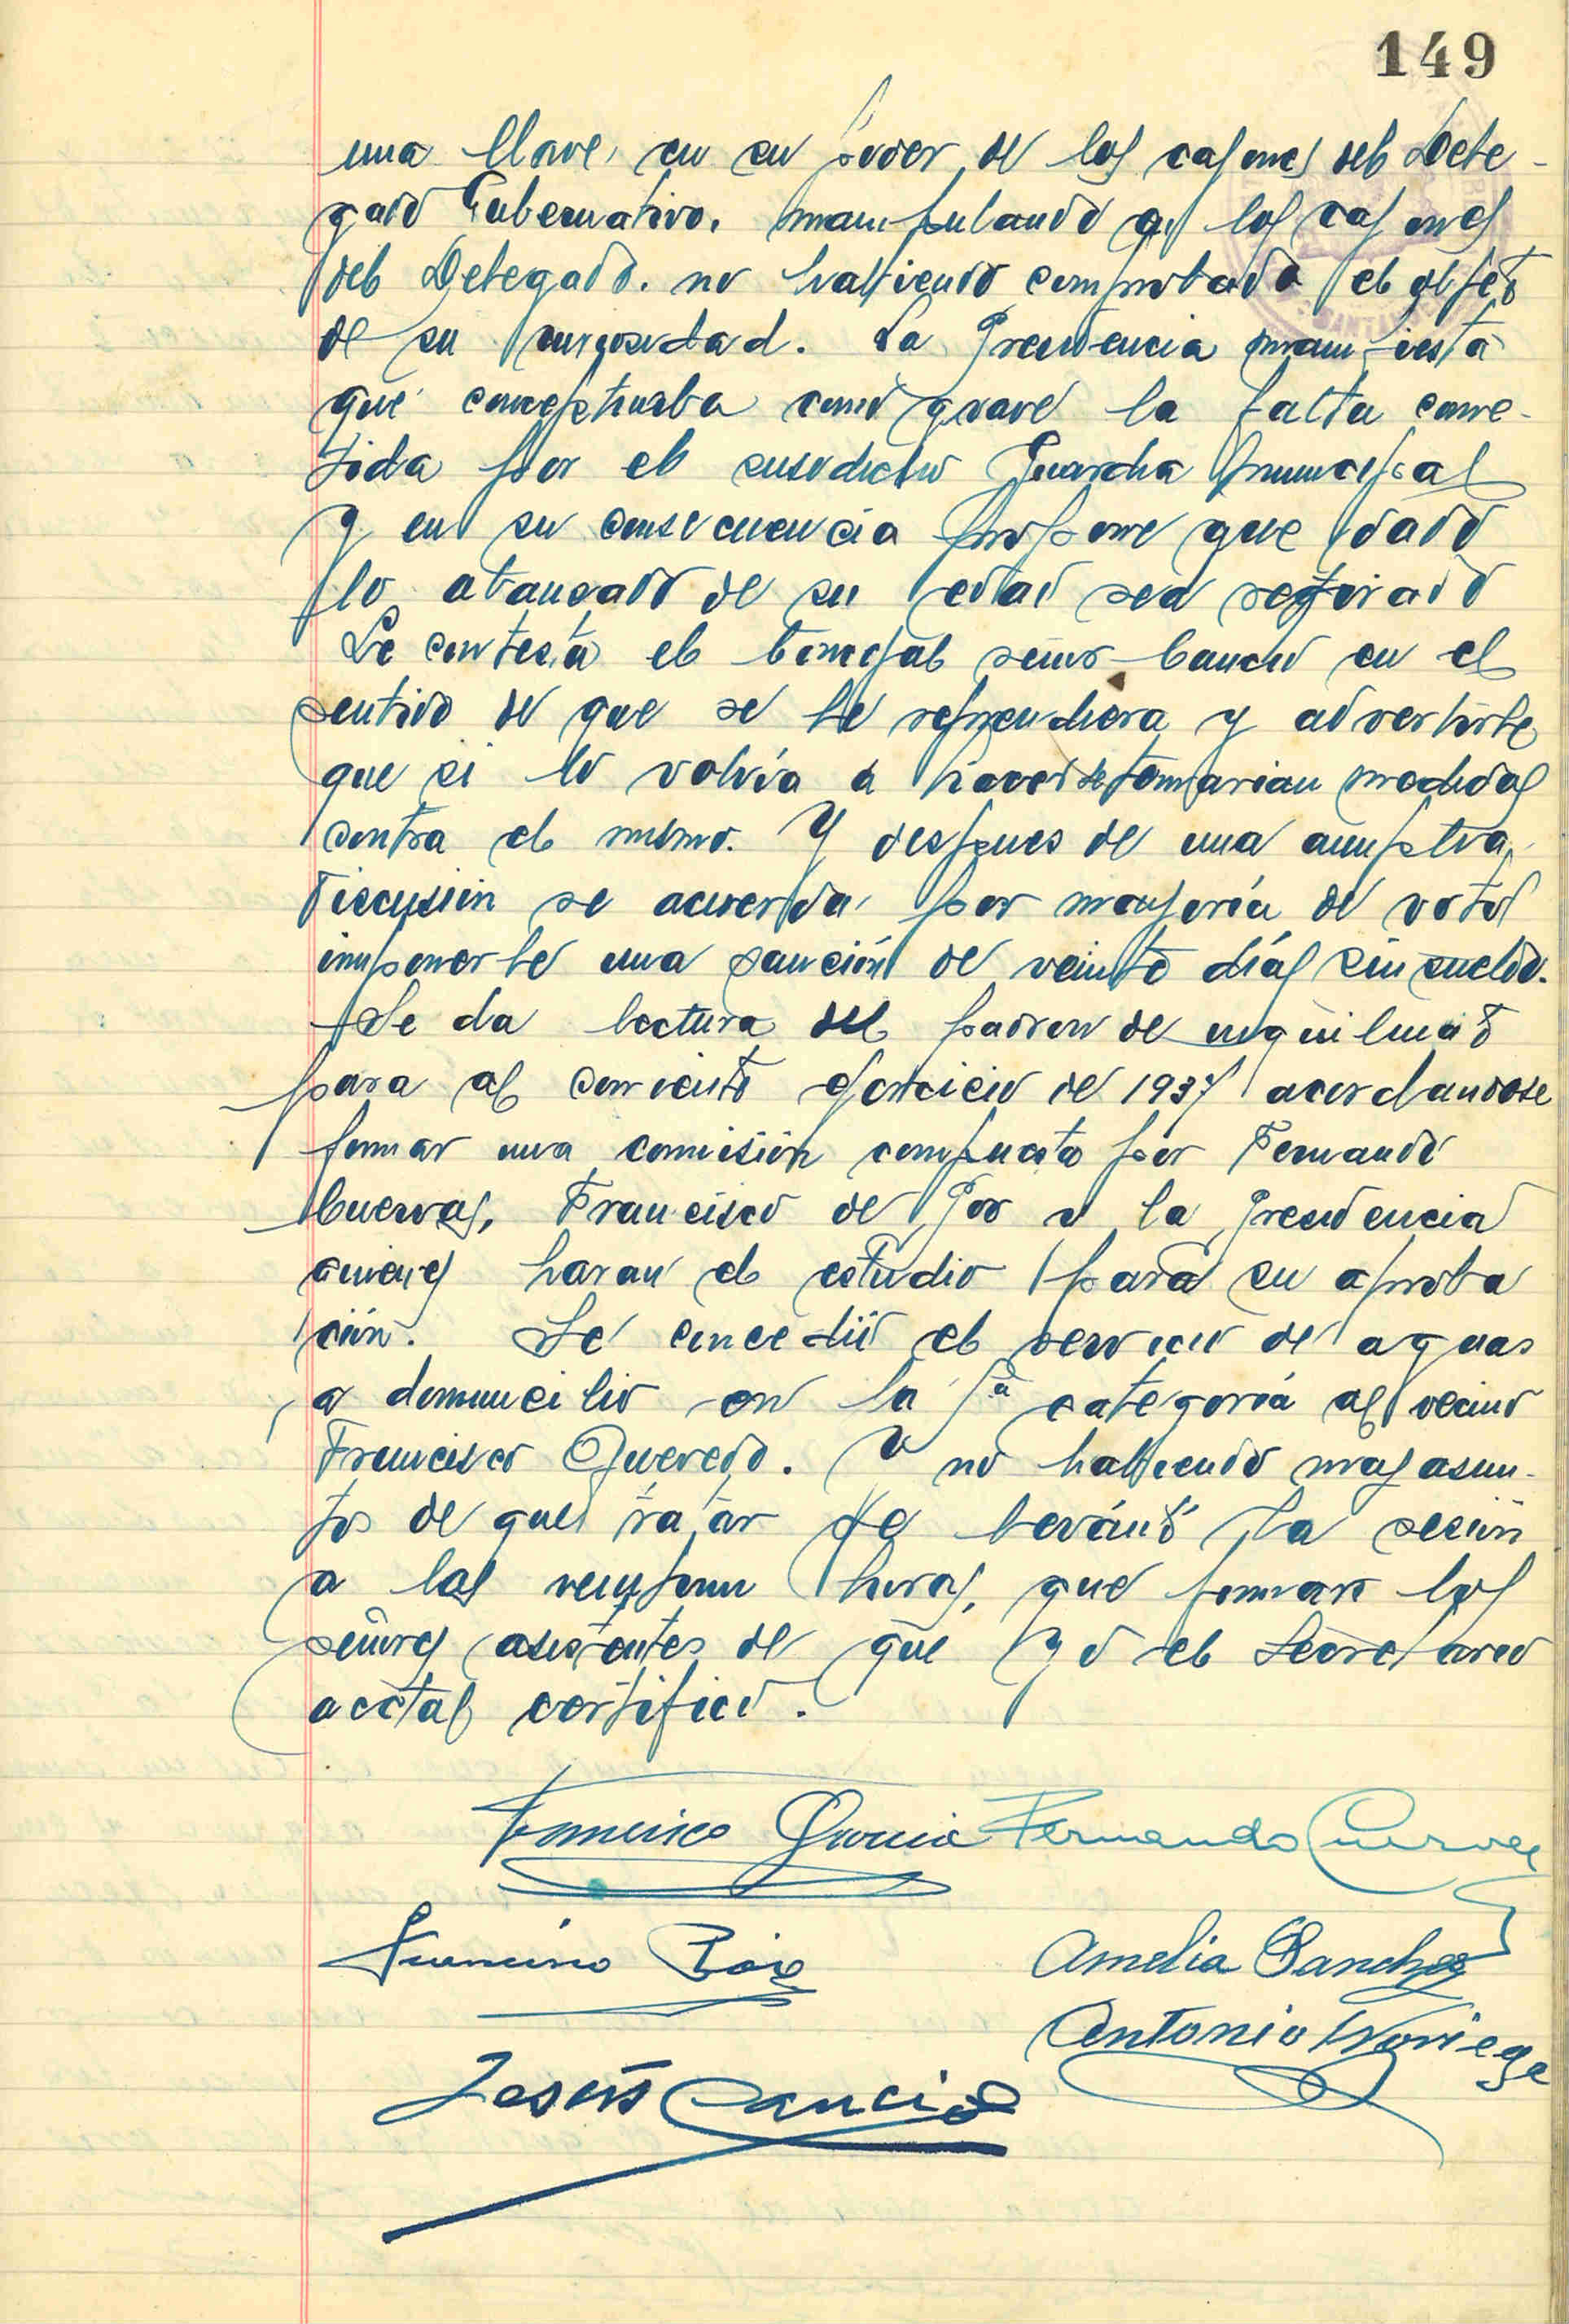 149
una llave, en su poder, de los cajones del Dele-
gado Gubernativo, manipulando en los cajones
del Delegado. no habiendo comprobado el objeto
de su curiosidad. La Presidencia manifiesta
que conceptuaba como grave la falta come-
tida por el susodicho Guardia municipal
y en su consecuencia propone que dado
lo abanzado de su edad sea retirado
Le contesta el Concejal señor Cancio en el
sentido de que se le reprendiera y advertirle
que si lo volvía a hacer se tomarian medidas
contra el mismo. Y despues de una amplia
discusión se acuerda, por mayoría de votos
imponerle una sanción de veinte días sin sueldo.
Se da lectura del padron de inquilinato
para el corriente ejercicio de 1937 acordandose
formar una comisión compuesta por Fernando
Cuevas, Francisco de Poo y la Presidencia
quienes haran el estudio para su aproba
ción. Se concedió el servicio de aguas
a domicilio en la 1ª categoría al vecino
Francisco Quevedo. Y no habiendo mas asun-
tos de que tratar se levántó la sesión
a las horas, que firman los
señores asistentes de que yo el Secretario
acctal certifico.
Francisco Garcia Fernando Cuevas
Francisco Amelia Sanchez
Antonio Noriega
Jesús Cancio